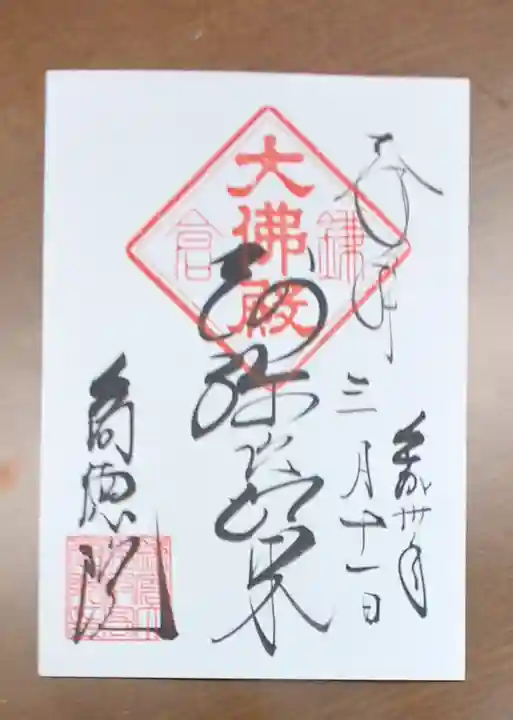 奉拝
平成卅年
三月十一日
大佛殿
鎌倉
阿弥陀如来
高徳院